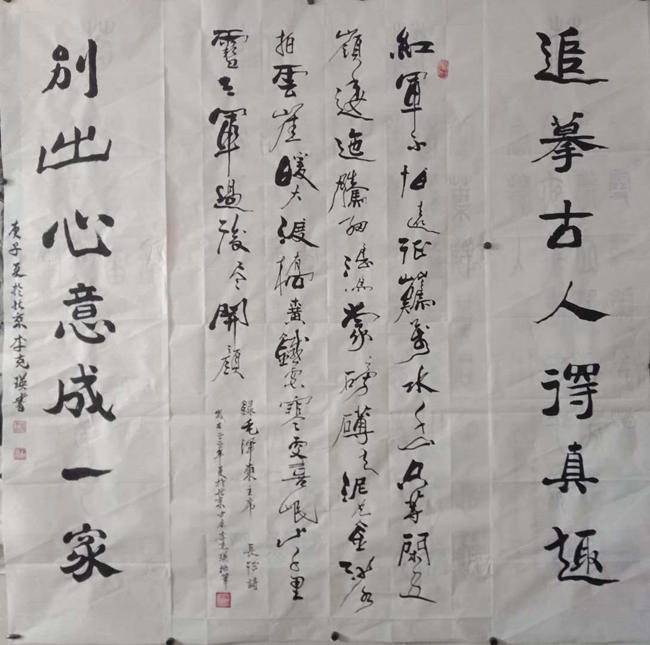 追摹古人得真趣
紅軍不怕遠征難萬水千山只等閑五
嶺逶迤騰細浪烏蒙磅礴走泥丸金沙水
拍雲崖暖大渡橋橫鐵索寒更喜岷山千里
雪三軍過後盡開顏
錄毛澤東主席 長征詩
年夏於北京李克瑛
別出心意成一家
庚子夏於北京李克瑛書